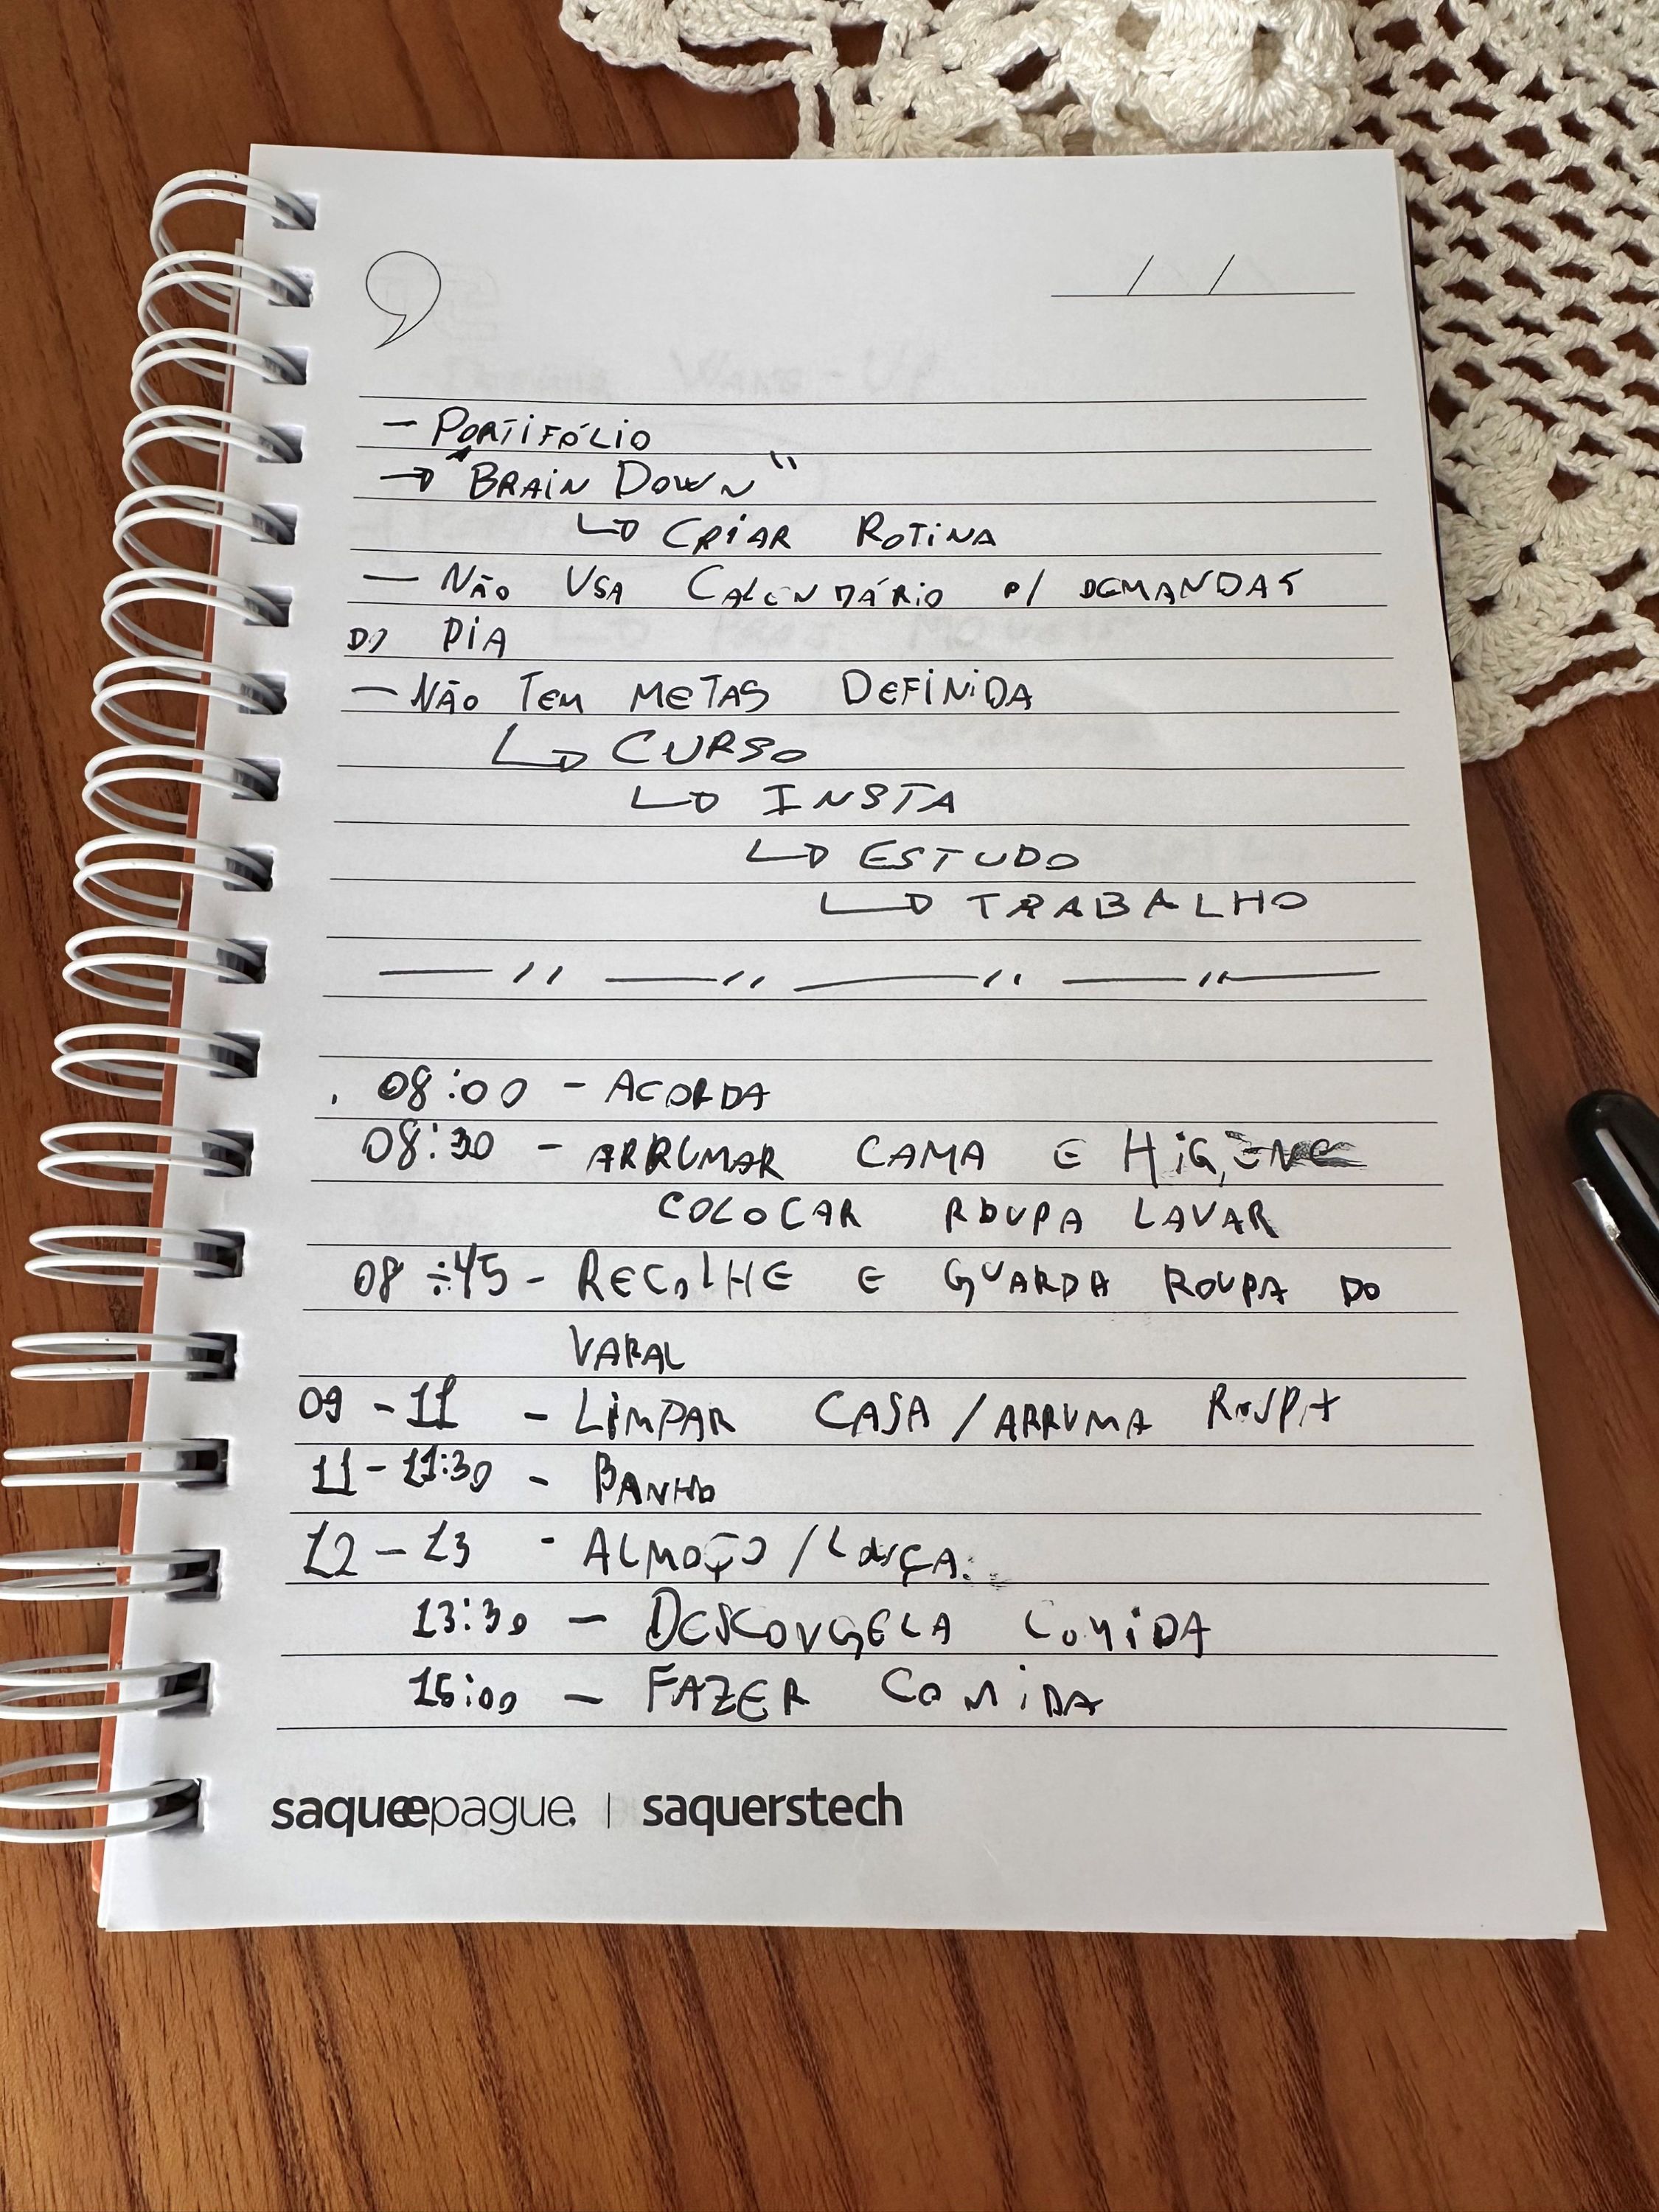 / /
- PORTIFÓLIO
→ "BRAIN DOWN"
↳ CRIAR ROTINA
- NÃO USA CALENDÁRIO P/ DEMANDAS
DO DIA
- NÃO TEM METAS DEFINIDA
↳ CURSO
↳ INSTA
↳ ESTUDO
↳ TRABALHO
— // — // — // — // —
. 08:00 - ACORDA
08:30 - ARRUMAR CAMA E HIGIENE
COLOCAR ROUPA LAVAR
08:45 - RECOLHE E GUARDA ROUPA DO
VARAL
09 - 11 - LIMPAR CASA / ARRUMA ROUPA
11 - 11:30 - BANHO
12 - 13 - ALMOÇO / LOUÇA.
13:30 - DESCONGELA COMIDA
15:00 - FAZER COMIDA
saqueepague. | saquerstech